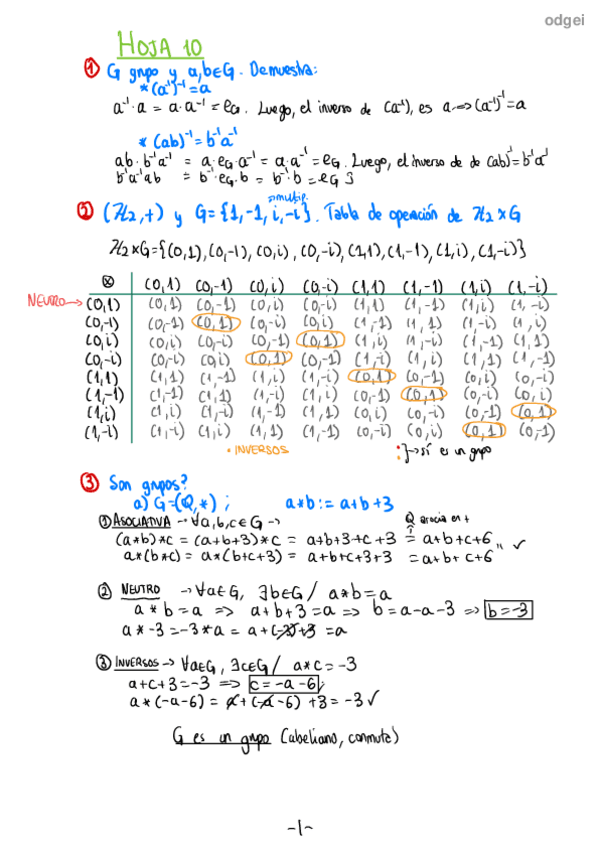 odgei
HOJA 10
① G grupo y a,b∈G. Demuestra:
* (a⁻¹)⁻¹ = a
a⁻¹·a = a·a⁻¹ = e_G. Luego, el inverso de (a⁻¹), es a ⟹ (a⁻¹)⁻¹ = a
* (ab)⁻¹ = b⁻¹a⁻¹
ab·b⁻¹a⁻¹ = a·e_G·a⁻¹ = a·a⁻¹ = e_G. Luego, el inverso de do (ab)⁻¹ = b⁻¹a⁻¹
b⁻¹a⁻¹ab = b⁻¹·e_G·b = b⁻¹·b = e_G
multip.
② (ℤ₂,+) y G={1,-1,i,-i}. Tabla de operación de ℤ₂×G
ℤ₂×G={(0,1),(0,-1),(0,i),(0,-i),(1,1),(1,-1),(1,i),(1,-i)}
⊗ (0,1) (0,-1) (0,i) (0,-i) (1,1) (1,-1) (1,i) (1,-i)
NEUTRO → (0,1) (0,1) (0,-1) (0,i) (0,-i) (1,1) (1,-1) (1,i) (1,-i)
(0,-1) (0,-1) (0,1) (0,-i) (0,i) (1,-1) (1,1) (1,-i) (1,i)
(0,i) (0,i) (0,-i) (0,-1) (0,1) (1,i) (1,-i) (1,-1) (1,1)
(0,-i) (0,-i) (0,i) (0,1) (0,-1) (1,-i) (1,i) (1,1) (1,-1)
(1,1) (1,1) (1,-1) (1,i) (1,-i) (0,1) (0,-1) (0,i) (0,-i)
(1,-1) (1,-1) (1,1) (1,-i) (1,i) (0,-1) (0,1) (0,-i) (0,i)
(1,i) (1,i) (1,-i) (1,-1) (1,1) (0,i) (0,-i) (0,-1) (0,1)
(1,-i) (1,-i) (1,i) (1,1) (1,-1) (0,-i) (0,i) (0,1) (0,-1)
• INVERSOS :}→ sí es un grupo
③ Son grupos?
a) G=(Q,*) ; a*b := a+b+3
① ASOCIATIVA → ∀a,b,c∈G → Q asocia en +
(a*b)*c = (a+b+3)*c = a+b+3+c+3 = a+b+c+6
a*(b*c) = a*(b+c+3) = a+b+c+3+3 = a+b+c+6 " ✓
② NEUTRO → ∀a∈G, ∃b∈G / a*b=a
a*b=a ⟹ a+b+3=a ⟹ b=a-a-3 ⟹ b=-3
a*-3=-3*a = a+(-3)+3 = a
③ INVERSOS → ∀a∈G, ∃c∈G / a*c=-3
a+c+3=-3 ⟹ c=-a-6
a*(-a-6) = a+(-a-6)+3 = -3 ✓
G es un grupo (abeliano, conmuta)
-1-